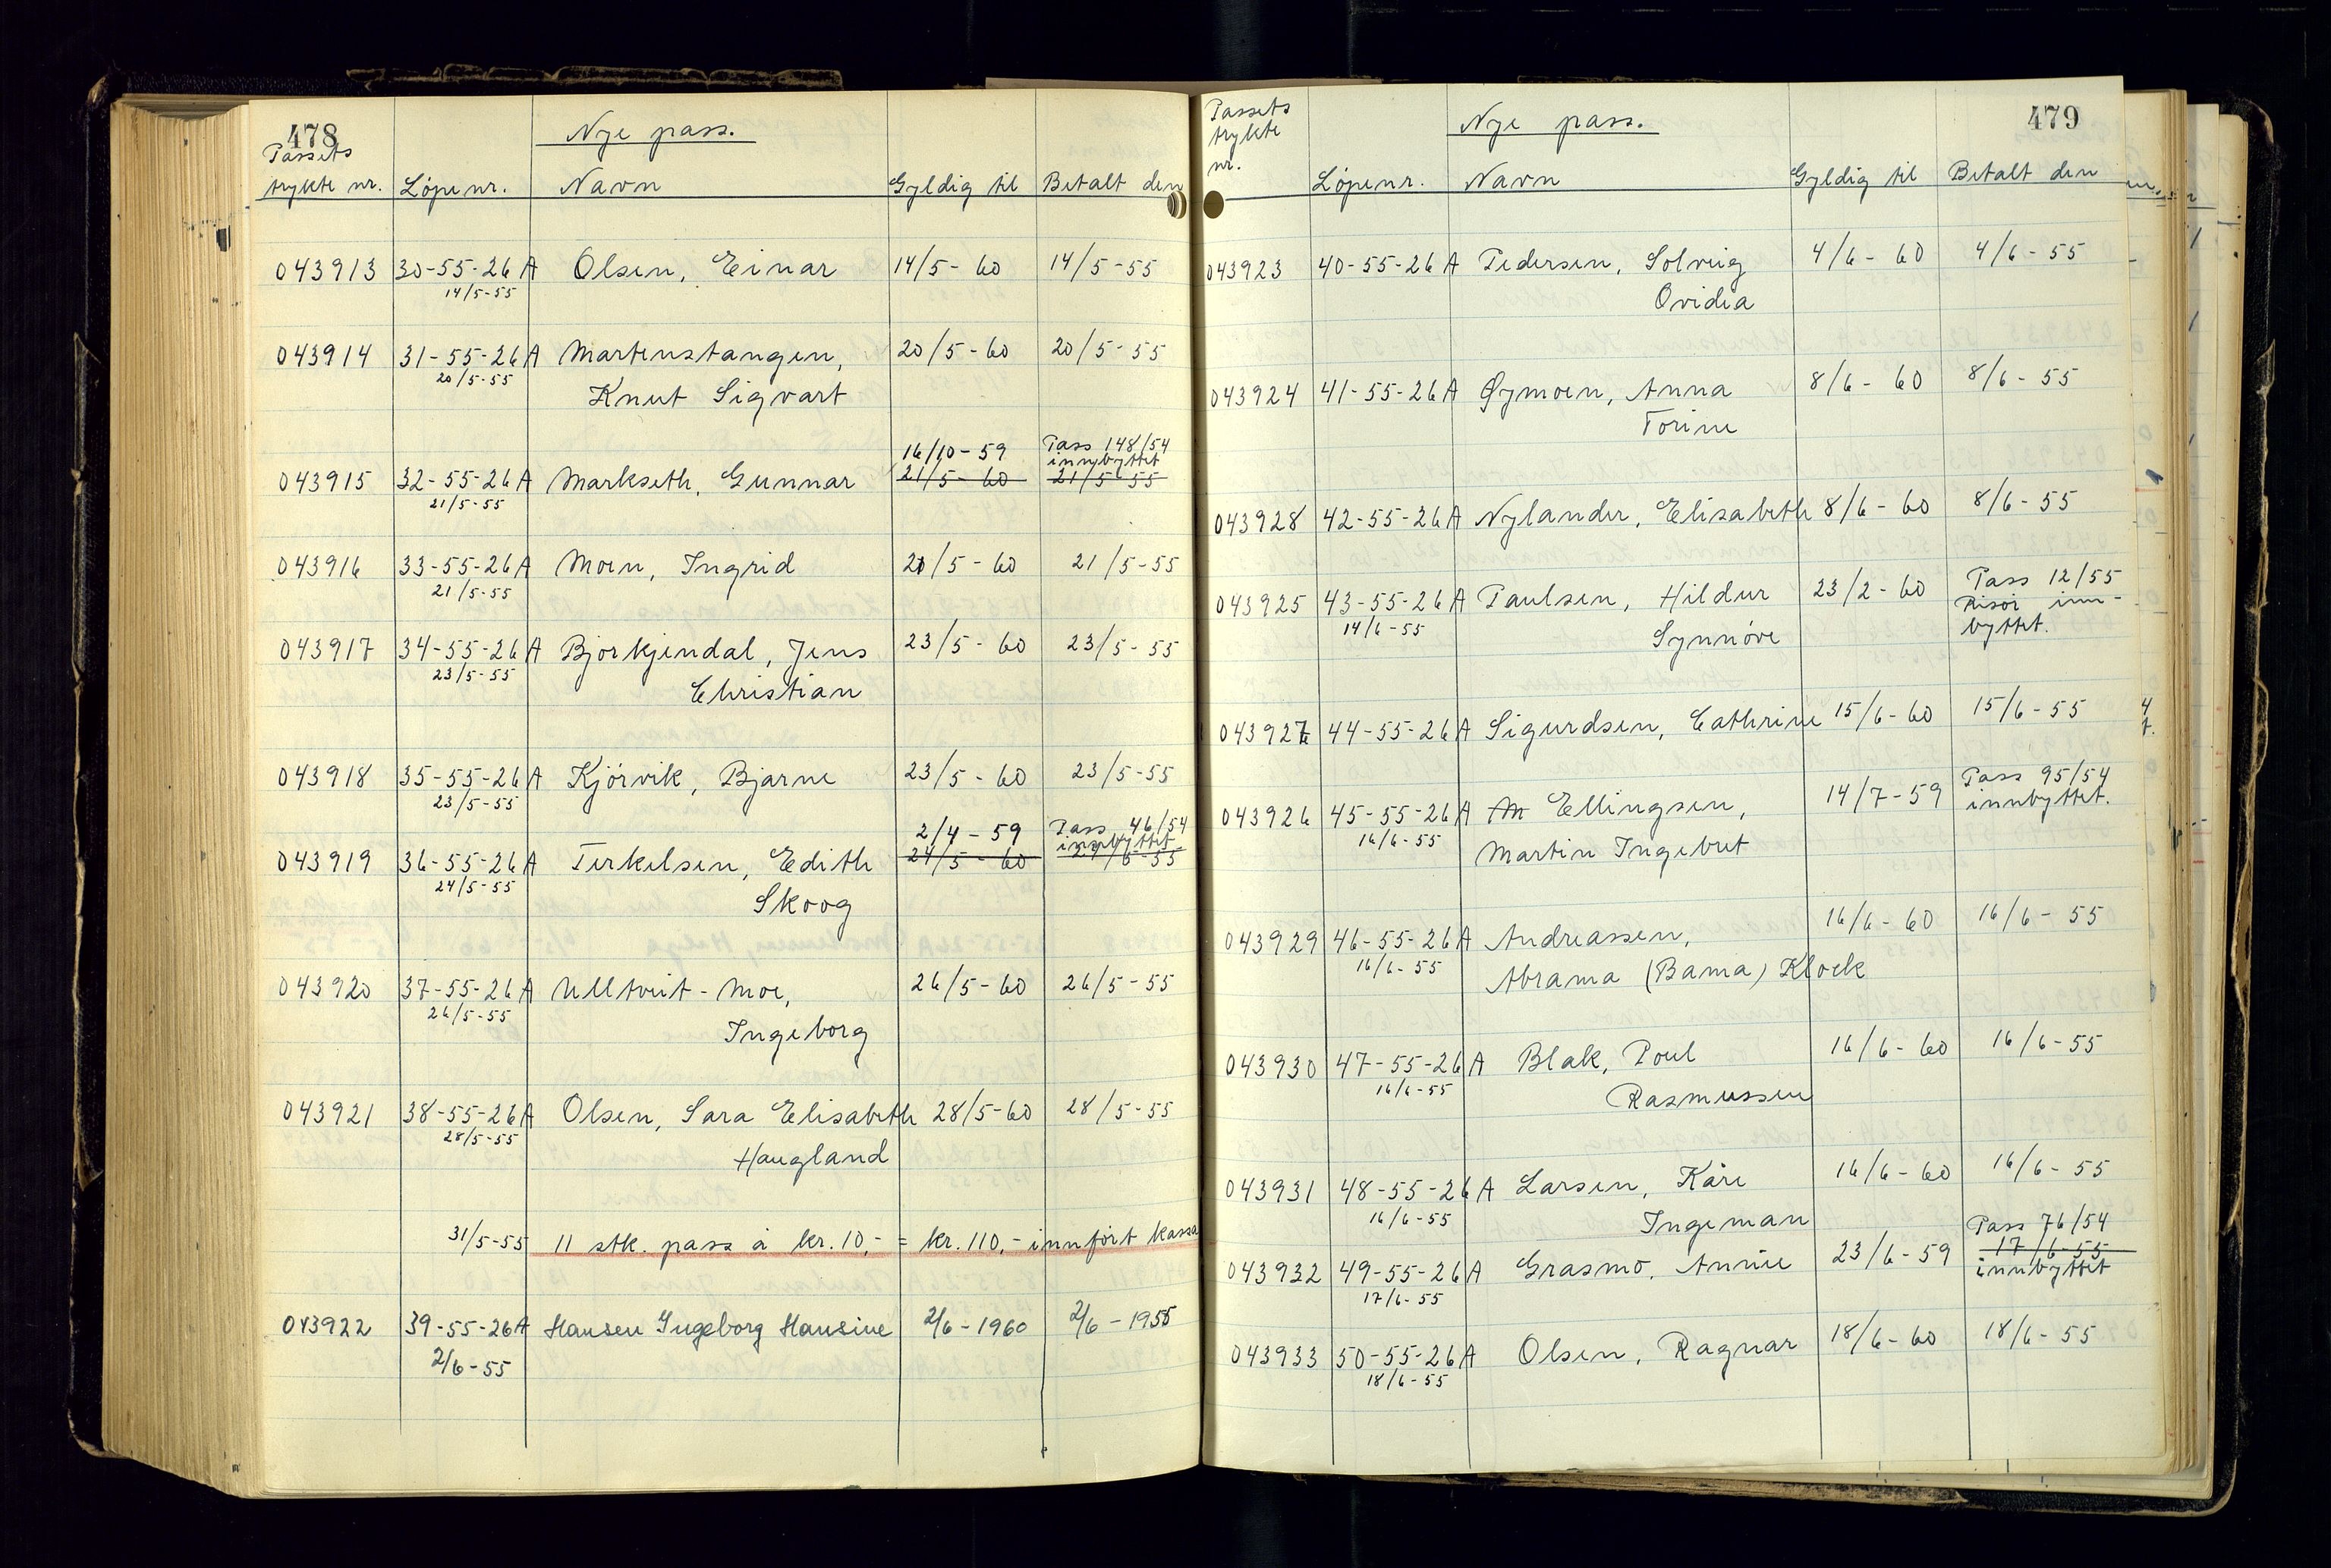 478
Nye pass.
Passets
trykte nr. Löpenr. Navn Gyldig til Betalt den
043913 30-55-26 A Olsen, Einar 14/5-60 14/5-55
14/5-55
043914 31-55-26 A Martenstangen, 20/5-60 20/5-55
20/5-55
Knut Sigvart
16/10-59 Pass 148/54
innbyttet
043915 32-55-26 A Markseth, Gunnar 21/5-60 21/5-55
21/5-55
043916 33-55-26 A Moen, Ingrid 21/5-60 21/5-55
21/5-55
043917 34-55-26 A Bjorkjendal, Jens 23/5-60 23/5-55
23/5-55
Christian
043918 35-55-26 A Kjörvik, Bjarne 23/5-60 23/5-55
23/5-55
2/4-59 Pass 46/54
innbyttet
043919 36-55-26 A Terkelsen, Edith 24/5-60
24/5-55
Skoog
043920 37-55-26 A Ulltveit-Moe, 26/5-60 26/5-55
26/5-55
Ingeborg
043921 38-55-26 A Olsen, Sara Elisabeth 28/5-60 28/5-55
28/5-55
Haugland
31/5-55 11 stk. pass à kr. 10,- = kr. 110,- innfört kassa
043922 39-55-26A Hansen Ingeborg Hansine 2/6-1960 2/6-1955
2/6-55
479
Nye pass.
Passets
trykte
nr. Löpenr. Navn Gyldig til Betalt den
043923 40-55-26 A Pedersen, Solveig 4/6-60 4/6-55
Ovidia
043924 41-55-26 A Øymoen, Anna 8/6-60 8/6-55
Torine
043928 42-55-26 A Nylander, Elisabeth 8/6-60 8/6-55
043925 43-55-26 A Paulsen, Hildur 23/2-60 Pass 12/55
14/6-55 Risör inn-
Synnöve byttet.
043927 44-55-26 A Sigurdsen, Cathrine 15/6-60 15/6-55
043926 45-55-26 A M Ellingsen, 14/7-59 Pass 95/54
innbyttet.
16/6-55
Martin Ingebret
043929 46-55-26 A Andreassen, 16/6-60 16/6-55
16/6-55
Abrama (Bama) Klock
043930 47-55-26 A Blak, Poul 16/6-60 16/6-55
16/6-55
Rasmussen
043931 48-55-26 A Larsen, Kåre 16/6-60 16/6-55
16/6-55
Ingeman
Pass 76/54
17/6-55
043932 49-55-26 A Grasmo, Annie 23/6-59 innbyttet
17/6-55
043933 50-55-26 A Olsen, Ragnar 18/6-60 18/6-55
18/6-55